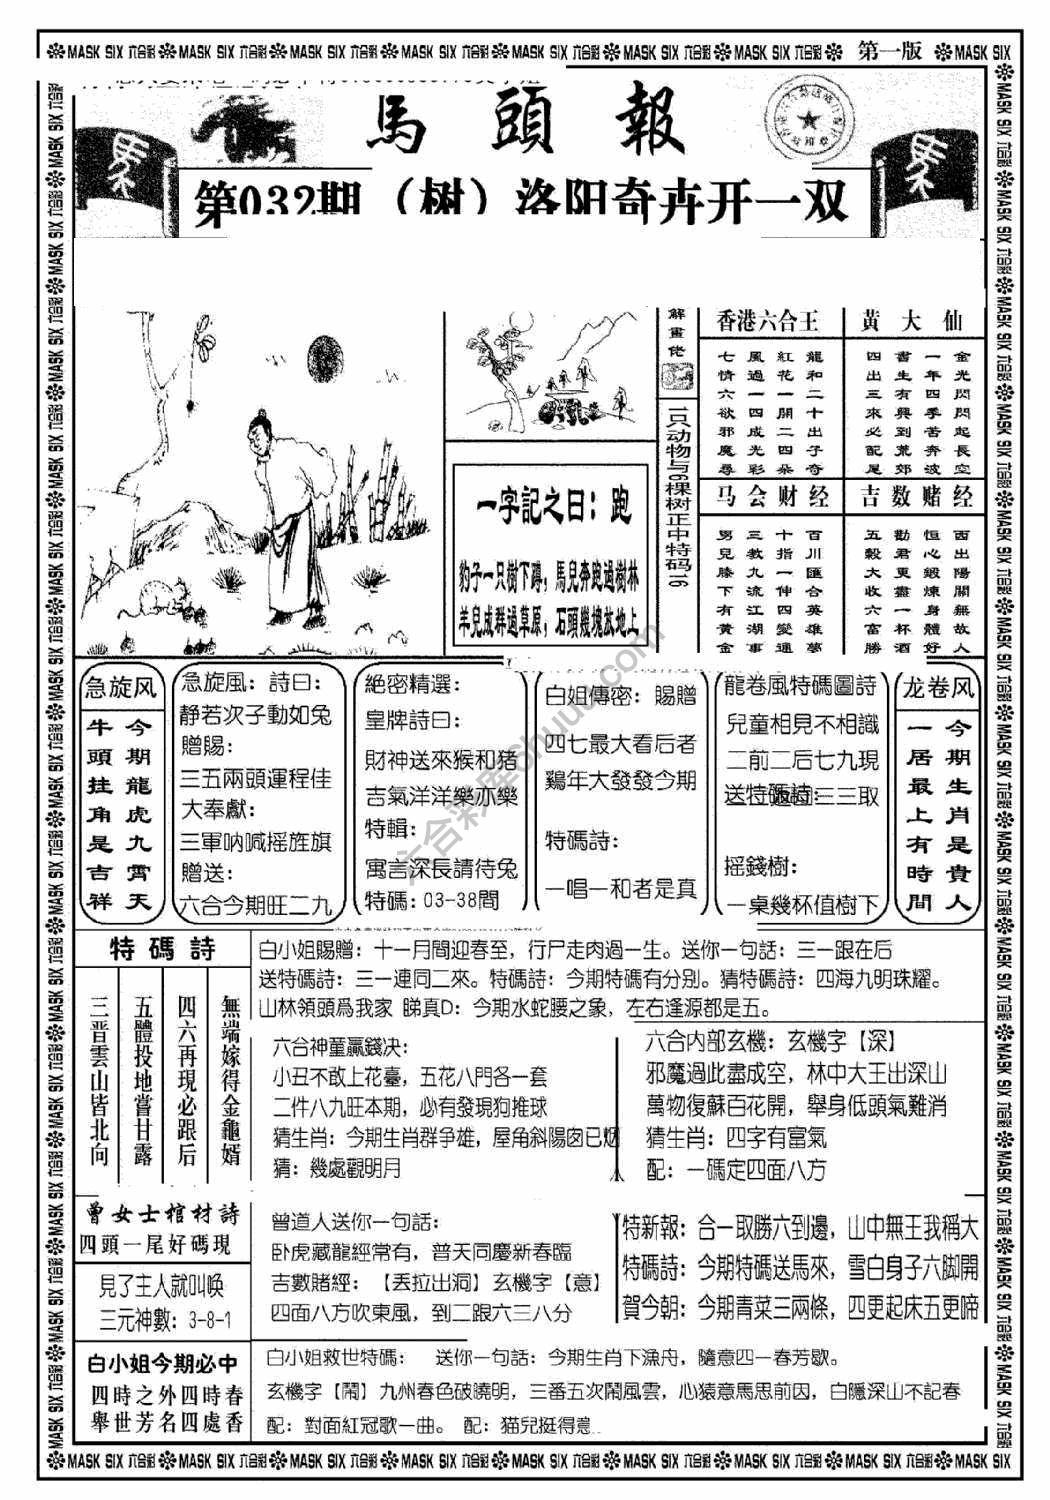 MASK SIX 六合彩 MASK SIX 六合彩 MASK SIX 六合彩 MASK SIX 六合彩 MASK SIX 六合彩 MASK SIX 六合彩 MASK SIX 六合彩 第一版 MASK SIX
馬頭報
第032期（树）洛阳奇卉开一双
解畫佬
1只动物与6棵树正中特码16
香港六合王
龍和二十出子奇
紅花一開二四朵
風過一四成光彩
七情六欲邪魔尋
黃大仙
金光閃閃起長空
一年四季苦奔波
書生有興到荒郊
四出三來必配尾
马会财经
百川匯合英雄夢
十指一伸四變通
三教九流江湖事
男兒膝下有黃金
吉数赌经
西出陽關無故人
恒心緞煉身體好
勸君更盡一杯酒
五穀大收六富勝
一字記之曰：跑
豹子一只樹下蹲，馬兒奔跑過樹林
羊兒成群過草原，石頭幾塊放地上
急旋风
今期龍虎九霄天
牛頭挂角是吉祥
急旋風：詩曰：
静若次子動如兔
贈賜：
三五兩頭運程佳
大奉獻：
三軍呐喊摇旌旗
贈送：
六合今期旺二九
絶密精選：
皇牌詩曰：
財神送來猴和猪
吉氣洋洋樂亦樂
特輯：
寓言深長請待兔
特碼：03-38間
白姐傳密：賜贈
四七最大看后者
鷄年大發發今期
特碼詩：
一唱一和者是真
龍卷風特碼圖詩
兒童相見不相識
二前二后七九現
摇錢樹：
一桌幾杯值樹下
龙卷风
今期生肖是貴人
一居最上有時間
特碼詩
無端嫁得金龜婿
四六再現必跟后
五體投地嘗甘露
三晋雲山皆北向
白小姐賜贈：十一月間迎春至，行尸走肉過一生。送你一句話：三一跟在后
送特碼詩：三一連同二來。特碼詩：今期特碼有分别。猜特碼詩：四海九明珠耀。
山林領頭爲我家 睇真D：今期水蛇腰之象，左右逢源都是五。
六合神童贏錢决：
小丑不敢上花臺，五花八門各一套
二件八九旺本期，必有發現狗推球
猜生肖：今期生肖群争雄，屋角斜陽囱已烟
猜：幾處觀明月
六合内部玄機：玄機字【深】
邪魔過此盡成空，林中大王出深山
萬物復蘇百花開，舉身低頭氣難消
猜生肖：四字有富氣
配：一碼定四面八方
曾女士棺材詩
四頭一尾好碼現
見了主人就叫唤
三元神數：3-8-1
曾道人送你一句話：
卧虎藏龍經常有，普天同慶新春臨
吉數賭經：【丢拉出洞】玄機字【意】
四面八方吹東風，到二跟六三八分
特新報：合一取勝六到邊，山中無王我稱大
特碼詩：今期特碼送馬來，雪白身子六脚開
賀今朝：今期青菜三兩條，四更起床五更啼
白小姐今期必中
四時之外四時春
舉世芳名四處香
白小姐救世特碼： 送你一句話：今期生肖下漁舟，隨意四一春芳歇。
玄機字【鬧】九州春色破曉明，三番五次鬧風雲，心猿意馬思前因，白隱深山不記春
配：對面紅冠歌一曲。 配：猫兒挺得意
MASK SIX 六合彩 MASK SIX 六合彩 MASK SIX 六合彩 MASK SIX 六合彩 MASK SIX 六合彩 MASK SIX 六合彩 MASK SIX 六合彩 MASK SIX 六合彩 MASK SIX